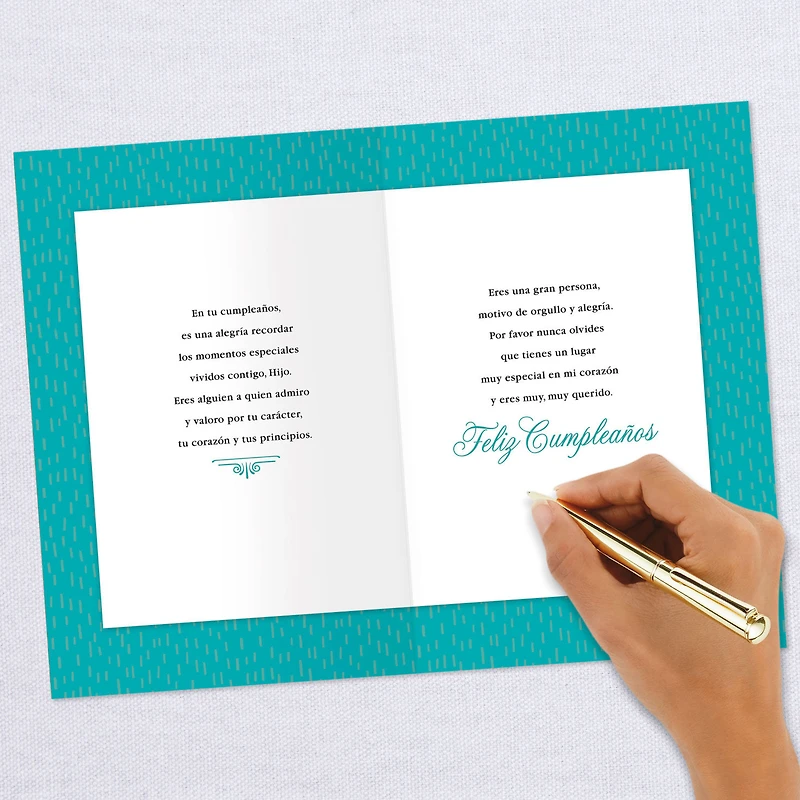 En tu cumpleaños,
es una alegría recordar
los momentos especiales
vividos contigo, Hijo.
Eres alguien a quien admiro
y valoro por tu carácter,
tu corazón y tus principios.
Eres una gran persona,
motivo de orgullo y alegría.
Por favor nunca olvides
que tienes un lugar
muy especial en mi corazón
y eres muy, muy querido.
Feliz Cumpleaños